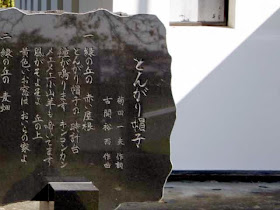 とんがり帽子
菊田一夫 作詞
古関裕而 作曲
一 緑の丘の 赤い屋根
とんがり帽子の 時計台
鐘が鳴ります キンコンカン
メイメイ小山羊も 啼いてます
風がそよそよ 丘の上
黄色いお窓は おいらの家よ
二 緑の丘の 麦畑